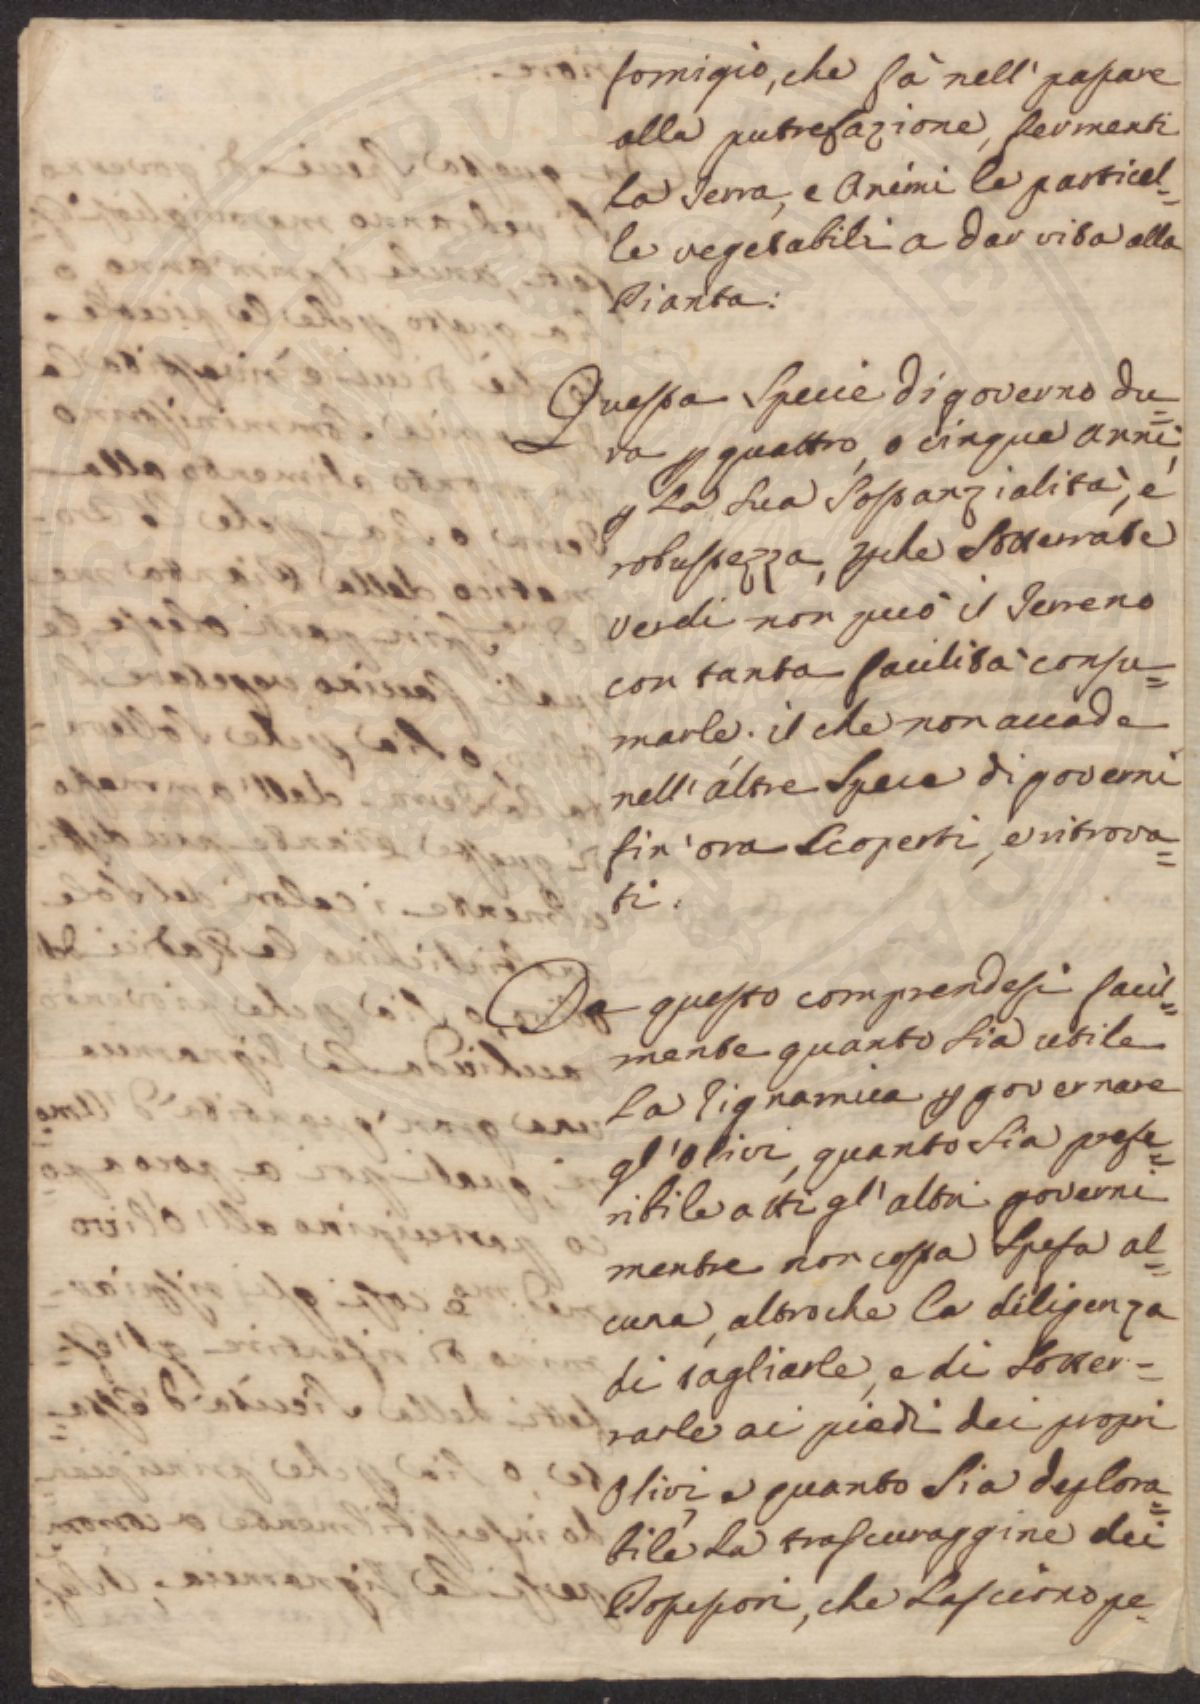 fomigio, che fà nell' passare
alla putrefazione, fermenti
La Terra, e Animi le particel=
le vegetabili a dar vita alla
Pianta:
Questa Specie di governo du=
ra p quattro, o cinque anni,
p La sua Sostanzialità, e
robustezza, pche Sotterrate
verdi non può il Terreno
con tanta facilità consu=
marle. il che non accade
nell' altre Spece di governi
fin' ora Scoperti, e ritrova=
ti.
Da questo comprendesi facil=
mente quanto sia utile
La Tignamica p governare
gl' Olivi, quanto sia prefe=
ribile a tti gl' altri governi
mentre non costa Spesa al=
cuna, altroche la diligenza
di tagliarle, e di Sotter=
rarle ai piedi dei propri
Olivi, e quanto Sia deplora=
bile La trascuraggine dei
che Lasciono pe=